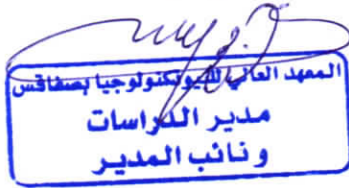 المعهد العالي للبيوتكنولوجيا بصفاقس
مدير الدراسات
ونائب المدير